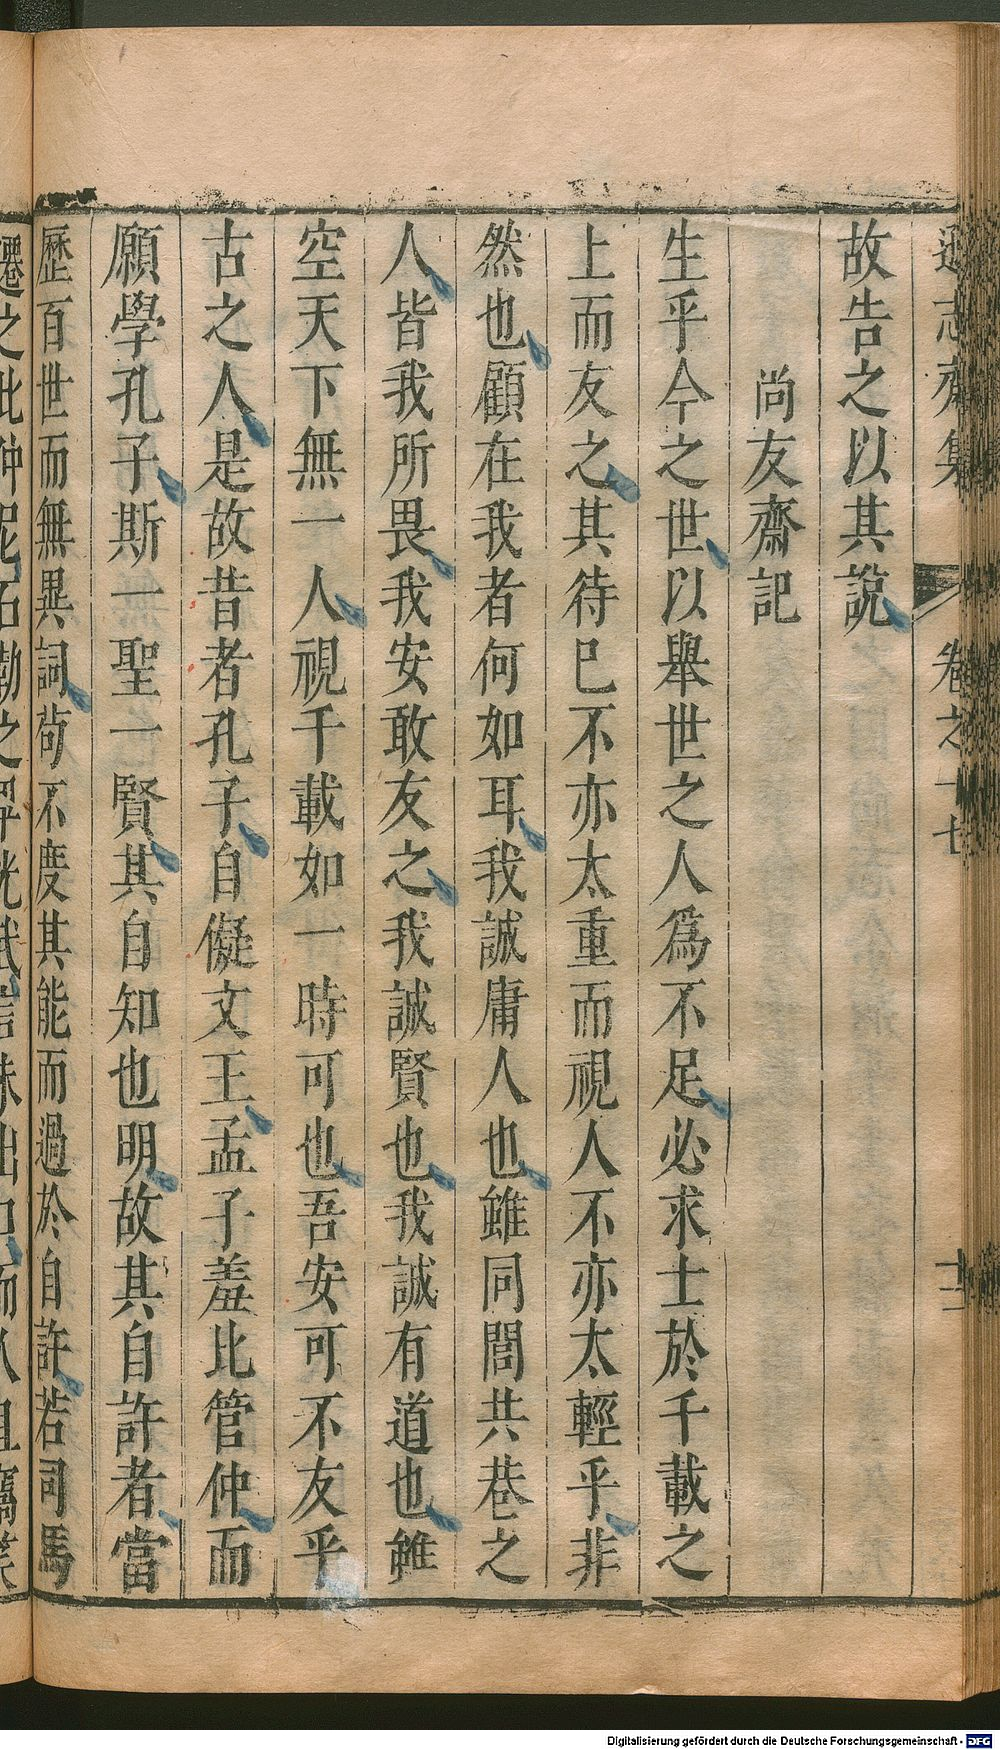 遜志齋集 卷之十七 十二
故告之以其說
尚友齋記
生乎今之世以舉世之人爲不足必求士於千載之
上而友之其待巳不亦太重而視人不亦太輕乎非
然也顧在我者何如耳我誠庸人也雖同閭共巷之
人皆我所畏我安敢友之我誠賢也我誠有道也雖
空天下無一人視千載如一時可也吾安可不友乎
古之人是故昔者孔子自儗文王孟子羞比管仲而
願學孔子斯一聖一賢其自知也明故其自許者當
歷百世而無異詞苟不度其能而過於自許若司馬
遷之比仲尼石勒之
Digitalisierung gefördert durch die Deutsche Forschungsgemeinschaft - DFG